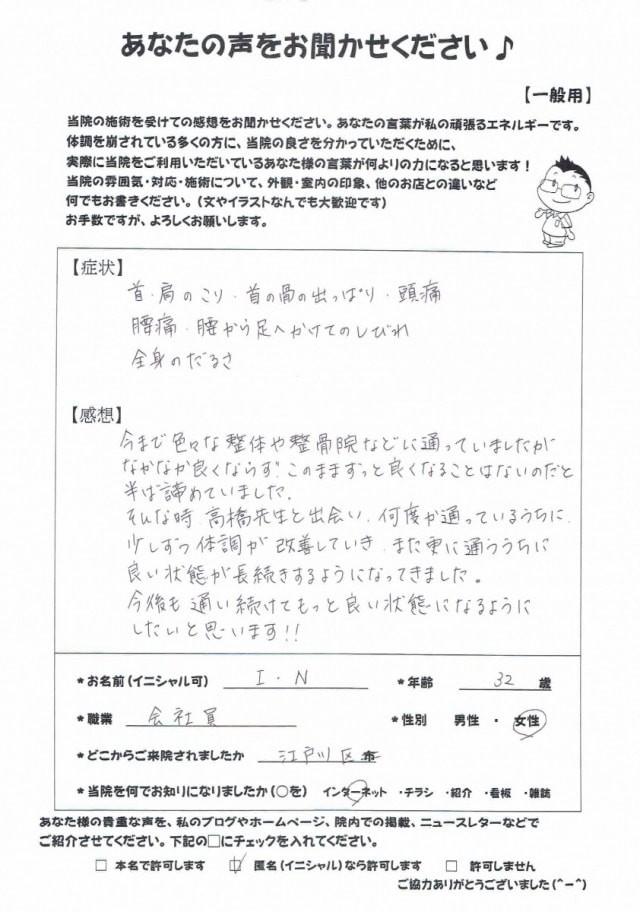 あなたの声をお聞かせください♪
【一般用】
当院の施術を受けての感想をお聞かせください。あなたの言葉が私の頑張るエネルギーです。
体調を崩されている多くの方に、当院の良さを分かっていただくために、
実際に当院をご利用いただいているあなた様の言葉が何よりの力になると思います！
当院の雰囲気・対応・施術について、外観・室内の印象、他のお店との違いなど
何でもお書きください。（文やイラストなんでも大歓迎です）
お手数ですが、よろしくお願いします。
【症状】
首・肩のこり・首の骨の出っぱり・頭痛
腰痛・腰から足へかけてのしびれ
全身のだるさ
【感想】
今まで色々な整体や整骨院などに通っていましたが
なかなか良くならず、このままずっと良くなることはないのだと
半ば諦めていました。
そんな時、高橋先生と出会い、何度か通っているうちに、
少しずつ体調が改善していき、また更に通ううちに
良い状態が長続きするようになってきました。
今後も通い続けてもっと良い状態になるように
したいと思います!!
*お名前（イニシャル可） I・N *年齢 32 歳
*職業 会社員 *性別 男性 ・ 女性
*どこからご来院されましたか 江戸川区市
*当院を何でお知りになりましたか（○を） インターネット ・チラシ ・紹介 ・看板 ・雑誌
あなた様の貴重な声を、私のブログやホームページ、院内での掲載、ニュースレターなどで
ご紹介させてください。下記の□にチェックを入れてください。
□ 本名で許可します ☑ 匿名（イニシャル）なら許可します □ 許可しません
ご協力ありがとうございました（^－^）